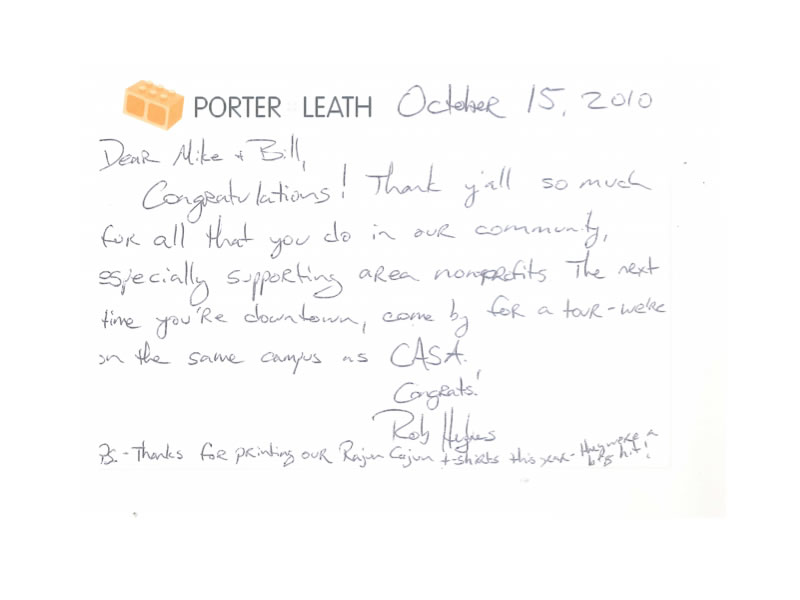 PORTER LEATH October 15, 2010
Dear Mike + Bill,
Congratulations! Thank y'all so much
for all that you do in our community,
especially supporting area nonprofits The next
time you're downtown, come by for a tour - we're
on the same campus as CASA.
Congrats!
Rob Hughes
PS. - Thanks for printing our Rajun Cajun t-shirts this year - they were a
big hit!